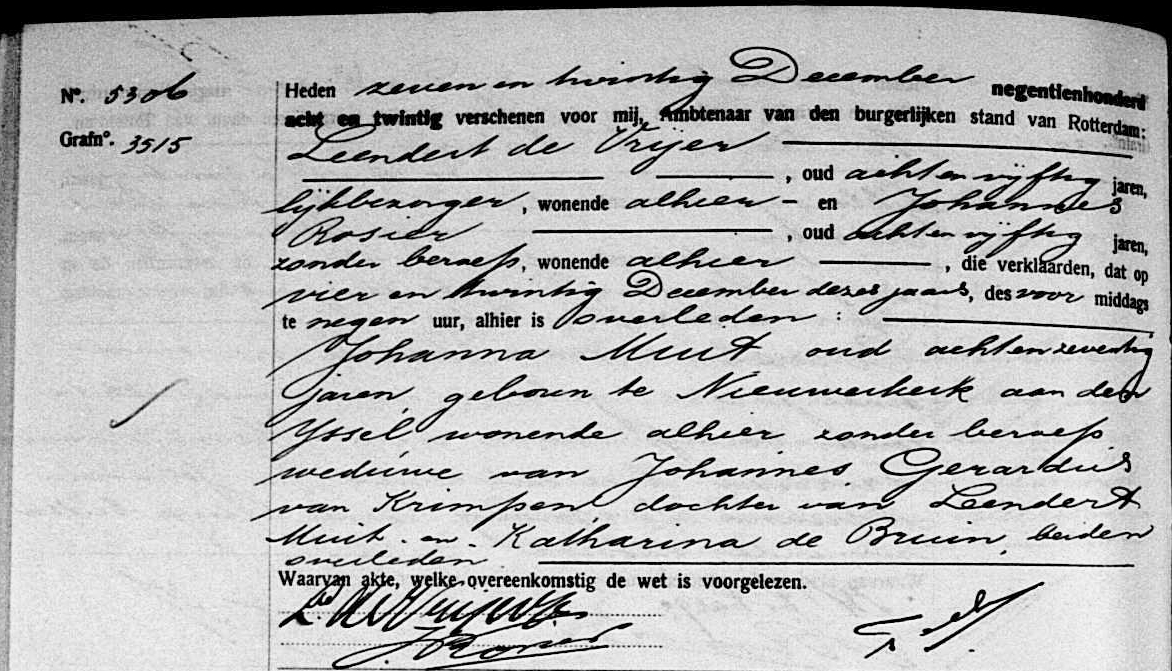 Nº. 5306
Grafnº. 3515
Heden zeven en twintig December negentienhonderd
acht en twintig verschenen voor mij, Ambtenaar van den burgerlijken stand van Rotterdam:
Leendert de Vrijer
, oud acht en vijftig jaren,
lijkbezorger, wonende alhier - en Johannes
Rosier , oud acht en vijftig jaren,
zonder beroep, wonende alhier , die verklaarden, dat op
vier en twintig December dezes jaars, des voor middags
te negen uur, alhier is overleden :
Johanna Muit oud acht en zeventig
jaren, geboren te Nieuwerkerk aan den
Yssel wonende alhier zonder beroep
weduwe van Johannes Gerardus
van Krimpen, dochter van Leendert
Muit - en - Katharina de Bruin, beiden
overleden
Waarvan akte, welke overeenkomstig de wet is voorgelezen.
J. Rosier